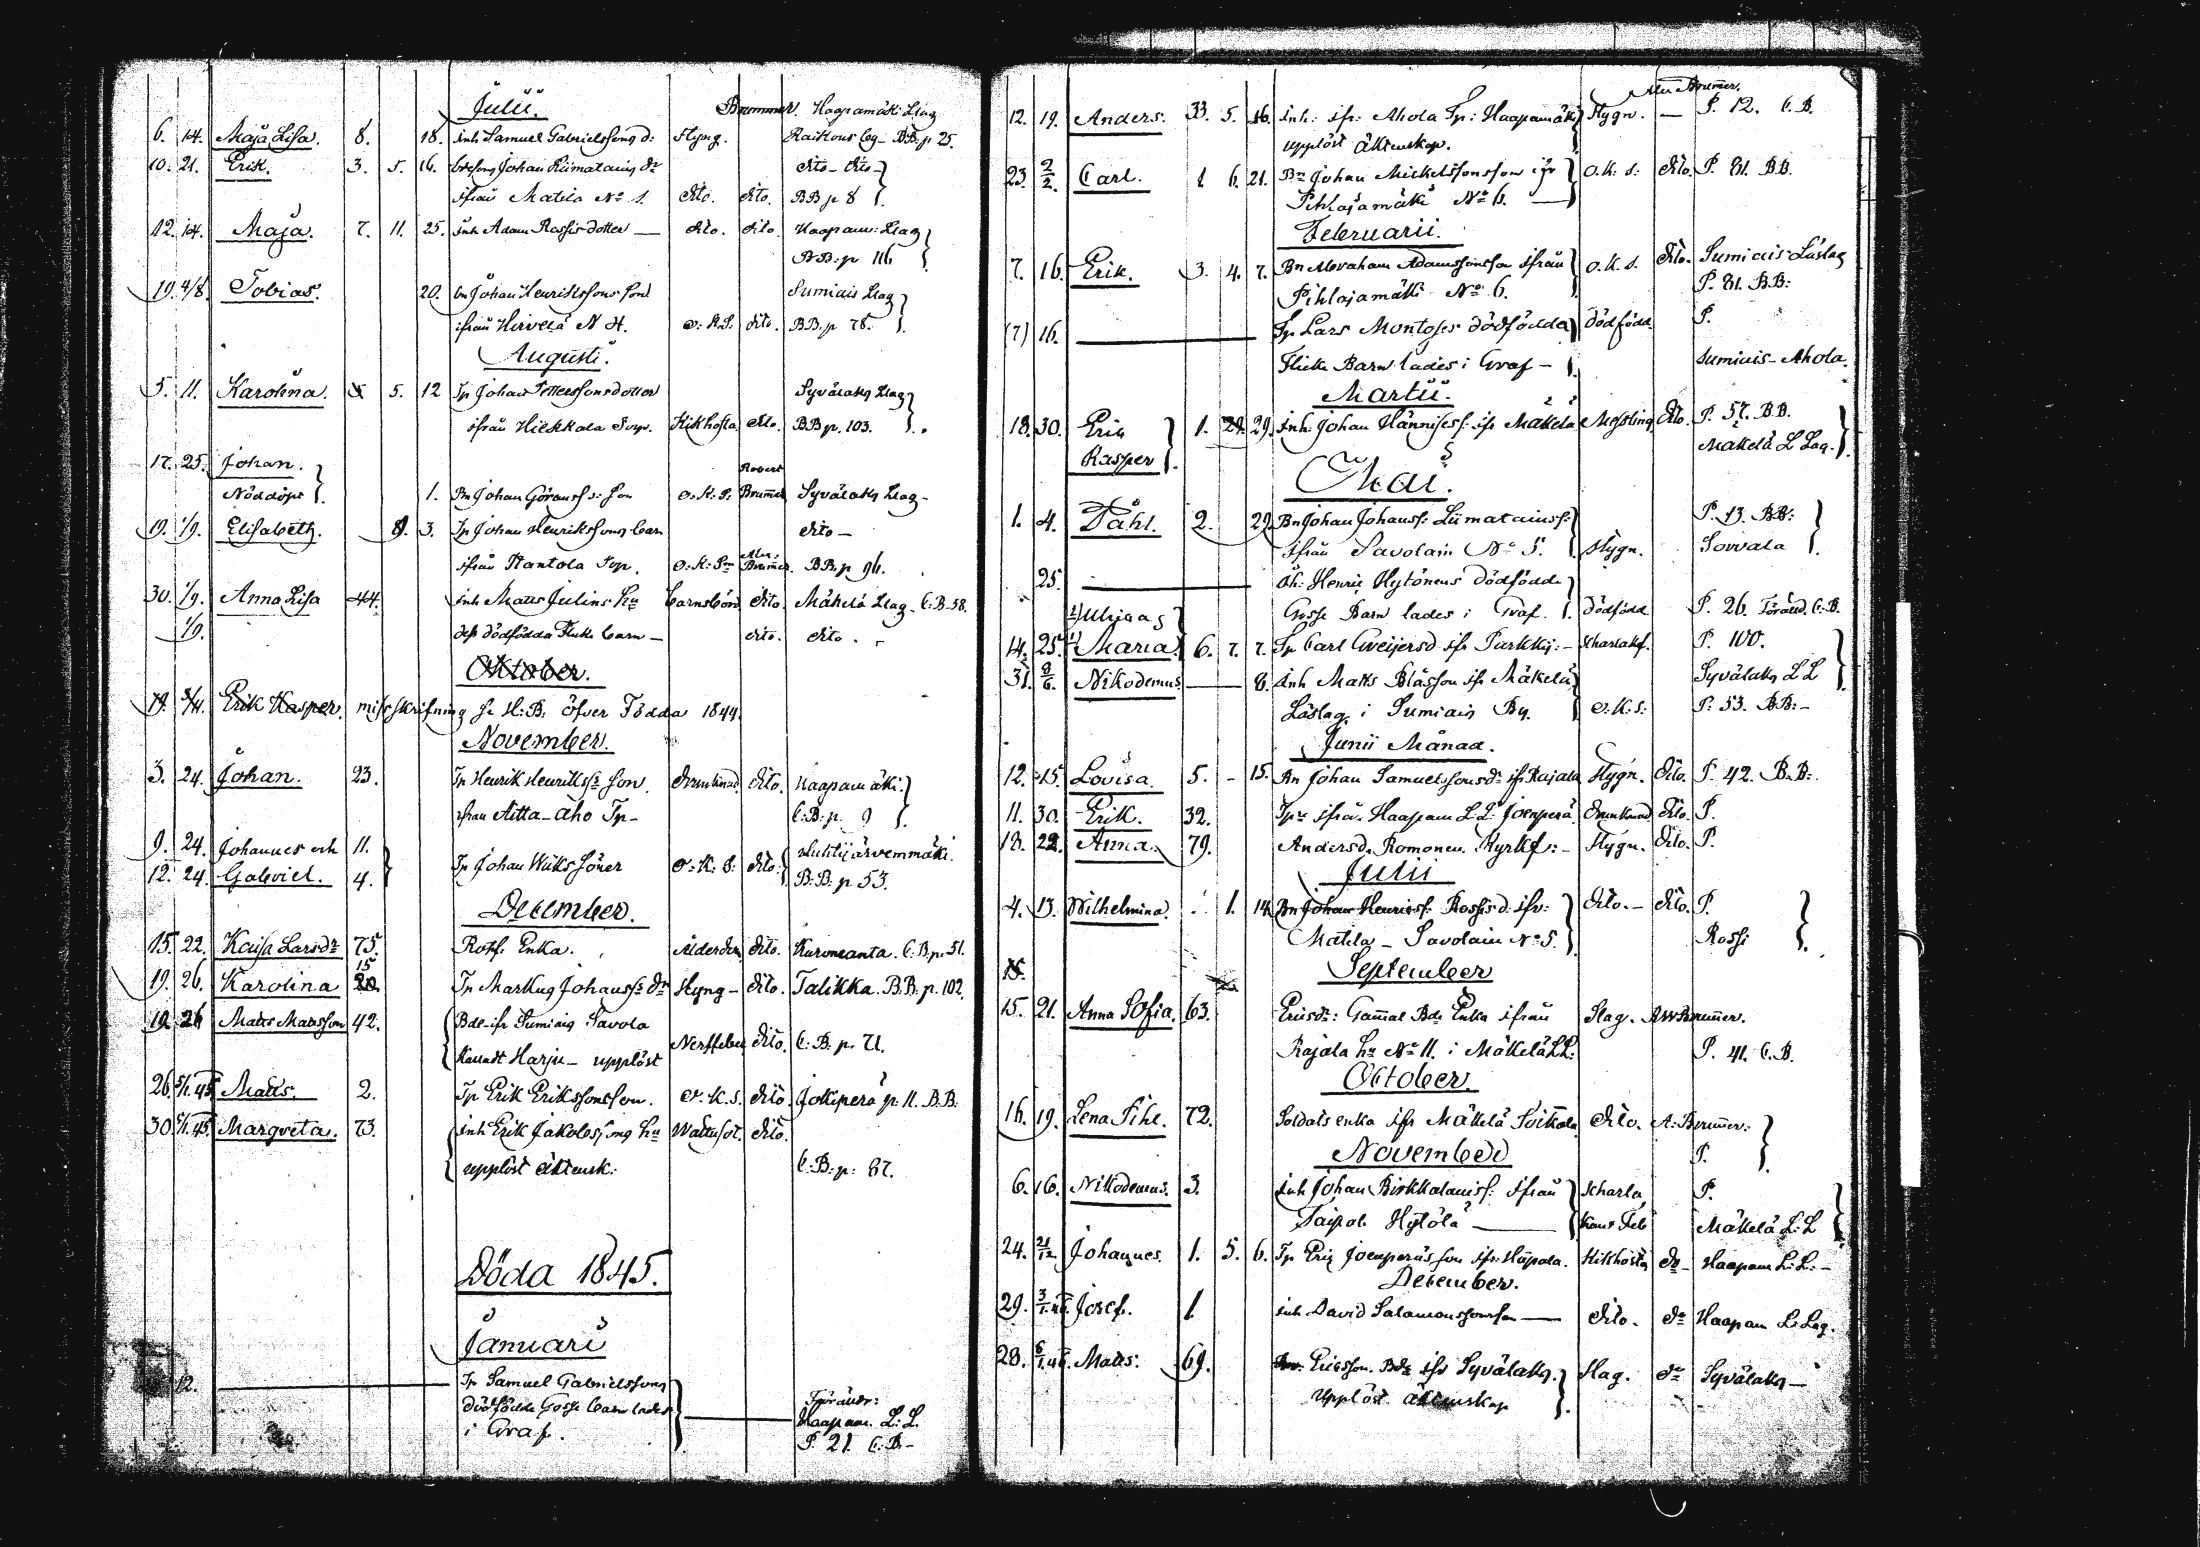 Julii.
Brummer. Haapamäki Llag
6. 14. Maja Lisa. 8. 18. inh Samuel Gabrielssons d: Hygn. Raittous Lag BB. p 25.
10. 21. Erik. 3. 5. 16. Johan Riimatains dito dito
ifrån Matila No 1. dito. dito. BB p 8
12. 14. Maja. 7. 11. 25. inh Adam Rossis dotter — dito. dito Haapam: Llag
BB: p 116
19. 4/8. Tobias. 20. bn Johan Henrikssons son Sumiais Llag
ifrån Hirvelä N 4. o: K. S. dito. BB. p 78.
Augusti.
5. 11. Karolina. 5. 12 Tp Johan Pettersons dotter Syvälaks Llag
ifrån Hiekkala Torp. Kikhosta dito. BB p. 103.
17. 25. Johan.
Nöddöpt 1. Bn Johan Göranss: son o: K: S: Robert Brumer Syvälaks Llag
19. 1/9. Elisabeth. 9. 3. Tp Johan Henrikssons barn dito —
ifrån Kantola Torp. o: K: S Alex: Brumer. BB. p 96.
30. 1/9. Anna Lisa 44. inh Matts Julins hu barnsbörd dito Mäkelä Llag. C: B. 58.
1/9. dess dödfödda Flicke barn — dito. dito.
Oktober.
19. 3/11. Erik Kasper. misskrifning se H: B: öfver Födda 1844.
November.
3. 24. Johan. 23. Tp Henrik Henrikss: son. drunknad dito. Haapamäki.
ifrån Aitta-aho Tp- C: B: p. 9
9. 24. Johannes och 11.
12. 24. Gabriel. 4. Tp Johan Wiiks söner o: K: S. dito. Luhtijärvemmäki.
B: B: p 53.
December.
15. 22. Kaisa Larsdr 75. Rotf. Enka. Ålderdom dito. C: B. p. 51.
19. 26. Karolina 15 20 Tp Markus Johanss dr Hygn- dito. Talikka. B. B. p. 102.
19 26 Matts Matsson 42. Bde ifr Sumiais Savola
Harju- upplöst Nerffeber dito. C: B: p. 71.
26. 5/1.45 Matts. 2. Tp Erik Erikssons son. o. K. S. dito Jokiperä p. 11. B. B.
30. 5/1.45. Margreta. 73. inh Erik Jakobssons hu Wattusot. dito.
upplöst äktensk: C: B: p: 87.
Döda 1845.
Januari
12. — Tp Samuel Gabrielssons
dödfödde Gosse barn lades
i Graf. Förändr:
Haapam. L: L.
P. 21. C: B.-
Alex Brumer.
12. 19. Anders. 33. 5. 16. inh: ifr: Ahola Tp: Haapamäki Hygn. — P. 12. C. B.
upplöst äktenskap.
23. 2/2. Carl. 1. 6. 21. Bn Johan Mickelssons son ifr O. K: S: dito. P. 81. BB.
Pihlajamäki No 6. —
Februarii.
7. 16. Erik. 3. 4. 7. Bn Abraham Adamssons son ifrån O. K. S. dito. Sumiais Läslag
Pihlajamäki No 6. P. 81. B.B:
(7) 16. — Tp Lars Montoses dödfödda dödfödd. P.
Flicke Barn lades i Graf — Sumiais- Ahola.
Martii.
18. 30. Eric 1. 29. 29. inh: Johan Hännises: ifr Mäkelä Messling dito. P. 57. B.B.
Kasper Mäkelä L Lag.
Mai.
1. 4. Påhl. 2. 29. Bn Johan Johanss: Liimatainss: P. 13. BB:
ifrån Savolain No 5. Hygn. Sovvala
25. — Åh: Henric Hytönens dödfödde
Ulricas Gosse Barn lades i Graf. dödfödd P. 26. Föränd. C. B.
14. 25. Maria. 6. 7. 7. Tp Carl Gweijersd ifr Purkki: - Skarlakf. P. 100.
31. 8/6. Nikodemus — 8. inh Matts Blåsson ifr Mäkelä Syvälaks L L
Läslag. i Sumiais By. O. K. S: P. 53. BB: -
Junii Månad.
12. 15. Lovisa. 5. - 15. Bn Johan Samuelssons dr ifr Rajala Hygn. dito. P. 42. B. B:
11. 30. Erik. 32. Tpr ifrån Haapam L. L. Joenperä drunknad dito. P.
18. 22. Anna. 79. Andersd. Romonen. Kyrkf: - Hygn. dito. P.
Julii
4. 13. Wilhelmina. 1. 14. Bn Johan Henricss: Rossis d. ifr: dito. - dito. P.
Matila - Savolain No 5. Rossi
15. September
15. 21. Anna Sofia. 63. Ericsdr: Gammal Bde Enka ifrån Slag. Brumer.
Rajala hn No 11. i Mäkelä LL: P. 41. C. B.
October.
16. 19. Lena Pihl. 72. Soldats enka ifr Mäkelä Soikala dito. A: Brumer:
November P.
6. 16. Nikodemus. 3. inh Johan Pirkkalains: ifrån Skarla P.
Saipol. Hytölä — kans Feb Mäkelä L: L
24. 21/12. Johannes. 1. 5. 6. Tp Eric Joenperäs son ifr: Kikhosta do Haapam L: L: -
December.
29. 3/1.46. Josef. 1 inh David Salamonssons son — dito. do Haapam L: Lag.
28. 6/1.46. Matts. 69. Ericsson. Bde ifr Syvälaks. Slag. do Syvälaks —
Upplöst äktenskap